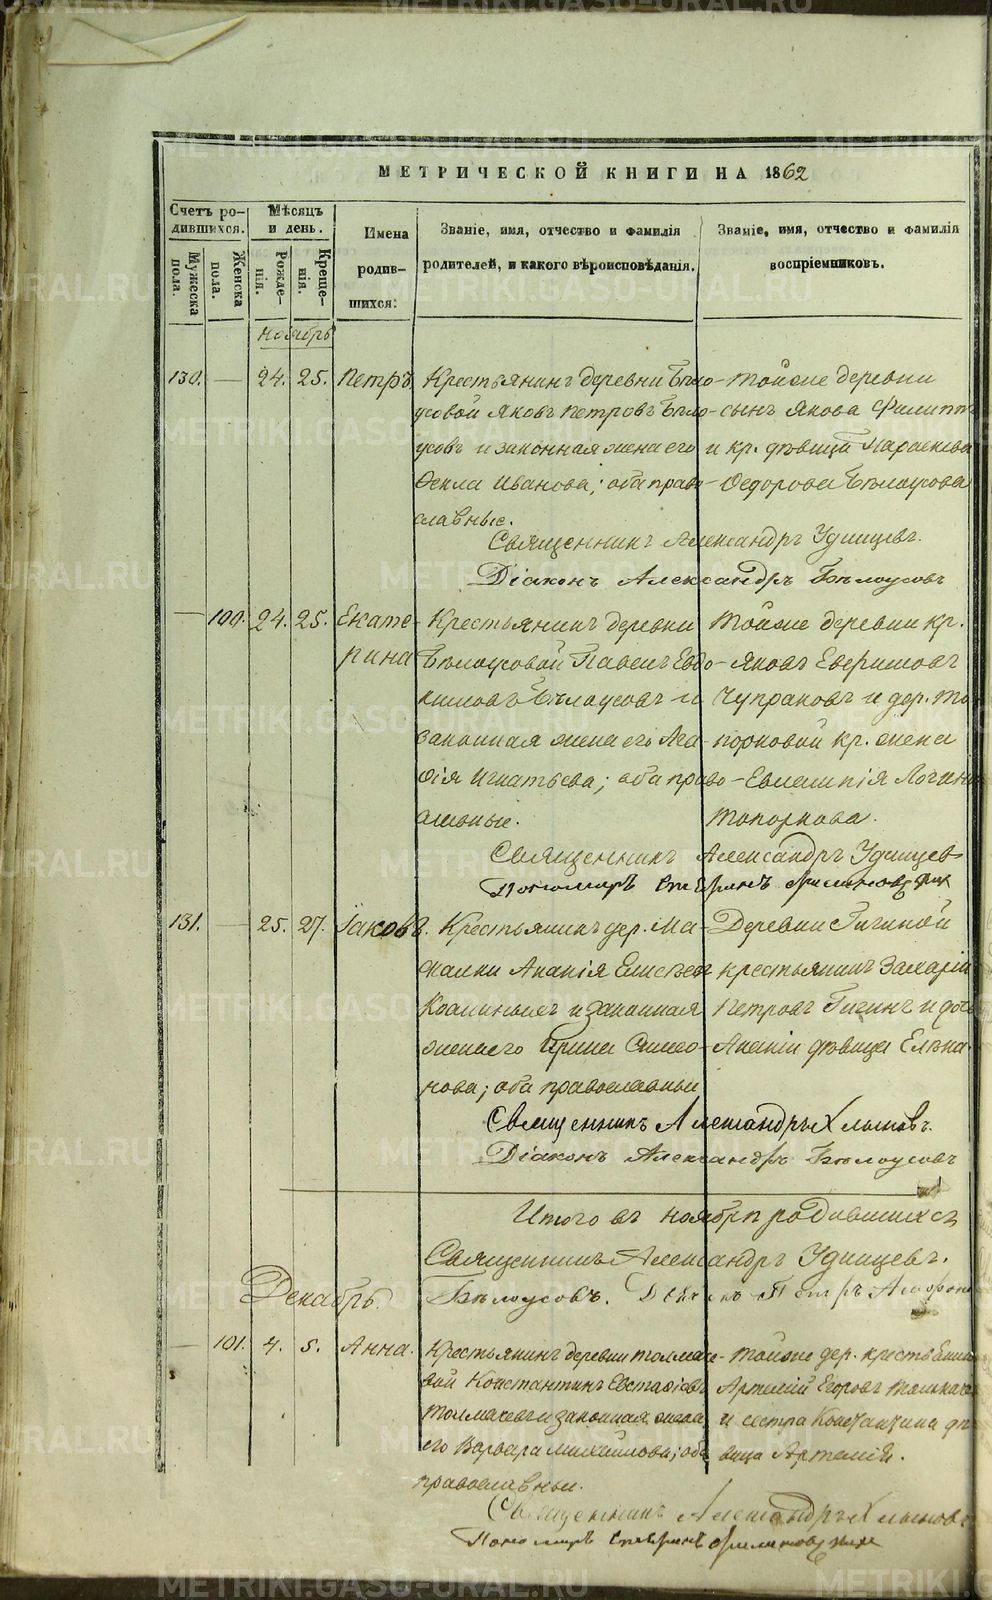 МЕТРИЧЕСКОЙ КНИГИ НА 1862
Счетъ родившихся.
Мужеска пола.
Женска пола.
Мѣсяцъ и день.
Рожденія.
Крещенія.
Имена родившихся:
Званіе, имя, отчество и фамилія родителей, и какого вѣроисповѣданія.
Званіе, имя, отчество и фамилія воспріемниковъ.
Ноябрь
130. — 24. 25. Петръ. Крестьянинъ деревни Бѣло- Тойже деревни
усовой Яковъ Петровъ Бѣло- сынъ Якова Филиппъ
усовъ и законная жена его и кр. дѣвица Параскева
Ѳекла Иванова; оба право- Ѳедорова Бѣлоусова
славные.
Священникъ Александръ Удинцевъ.
Діаконъ Александръ Бѣлоусовъ
— 100. 24. 25. Екате- Крестьянинъ деревни Тойже деревни кр.
рина Бѣлоусовой Павелъ Евдо- Яковъ
кимовъ Бѣлоусовъ и Чупраковъ и дер. То
законная жена его Ма- порковой кр. жена
Игнатьева; оба право- Евлампія Логин
славные. Топоркова.
Священникъ Александръ Удинцев
Пономарь
131. — 25. 27. Іаковъ. Крестьянинъ дер. Ма- Деревни Гигиной
Ананія крестьянинъ Захарій
и законная Петровъ Гигинъ и дочь
жена его Ирина Симео- Ананіи дѣвица Елена.
нова; оба православные
Священникъ Александръ Хлыновъ.
Діаконъ Александръ Бѣлоусовъ
Итого въ ноябрѣ родившихся
Священникъ Александръ Удинцевъ.
Бѣлоусовъ. Петръ
Декабрь.
— 101. 4. 5. Анна. Крестьянинъ деревни Толмаче- Тойже дер. крестьянин
вой Константинъ Евстафіевъ Артемій Егоровъ
Толмачевъ и законная жена и сестра Константина дѣ
его Варвара Михайлова; оба вица
православные.
Священникъ Александръ Хлыновъ
Пономарь
METRIKI.GASO-URAL.RU